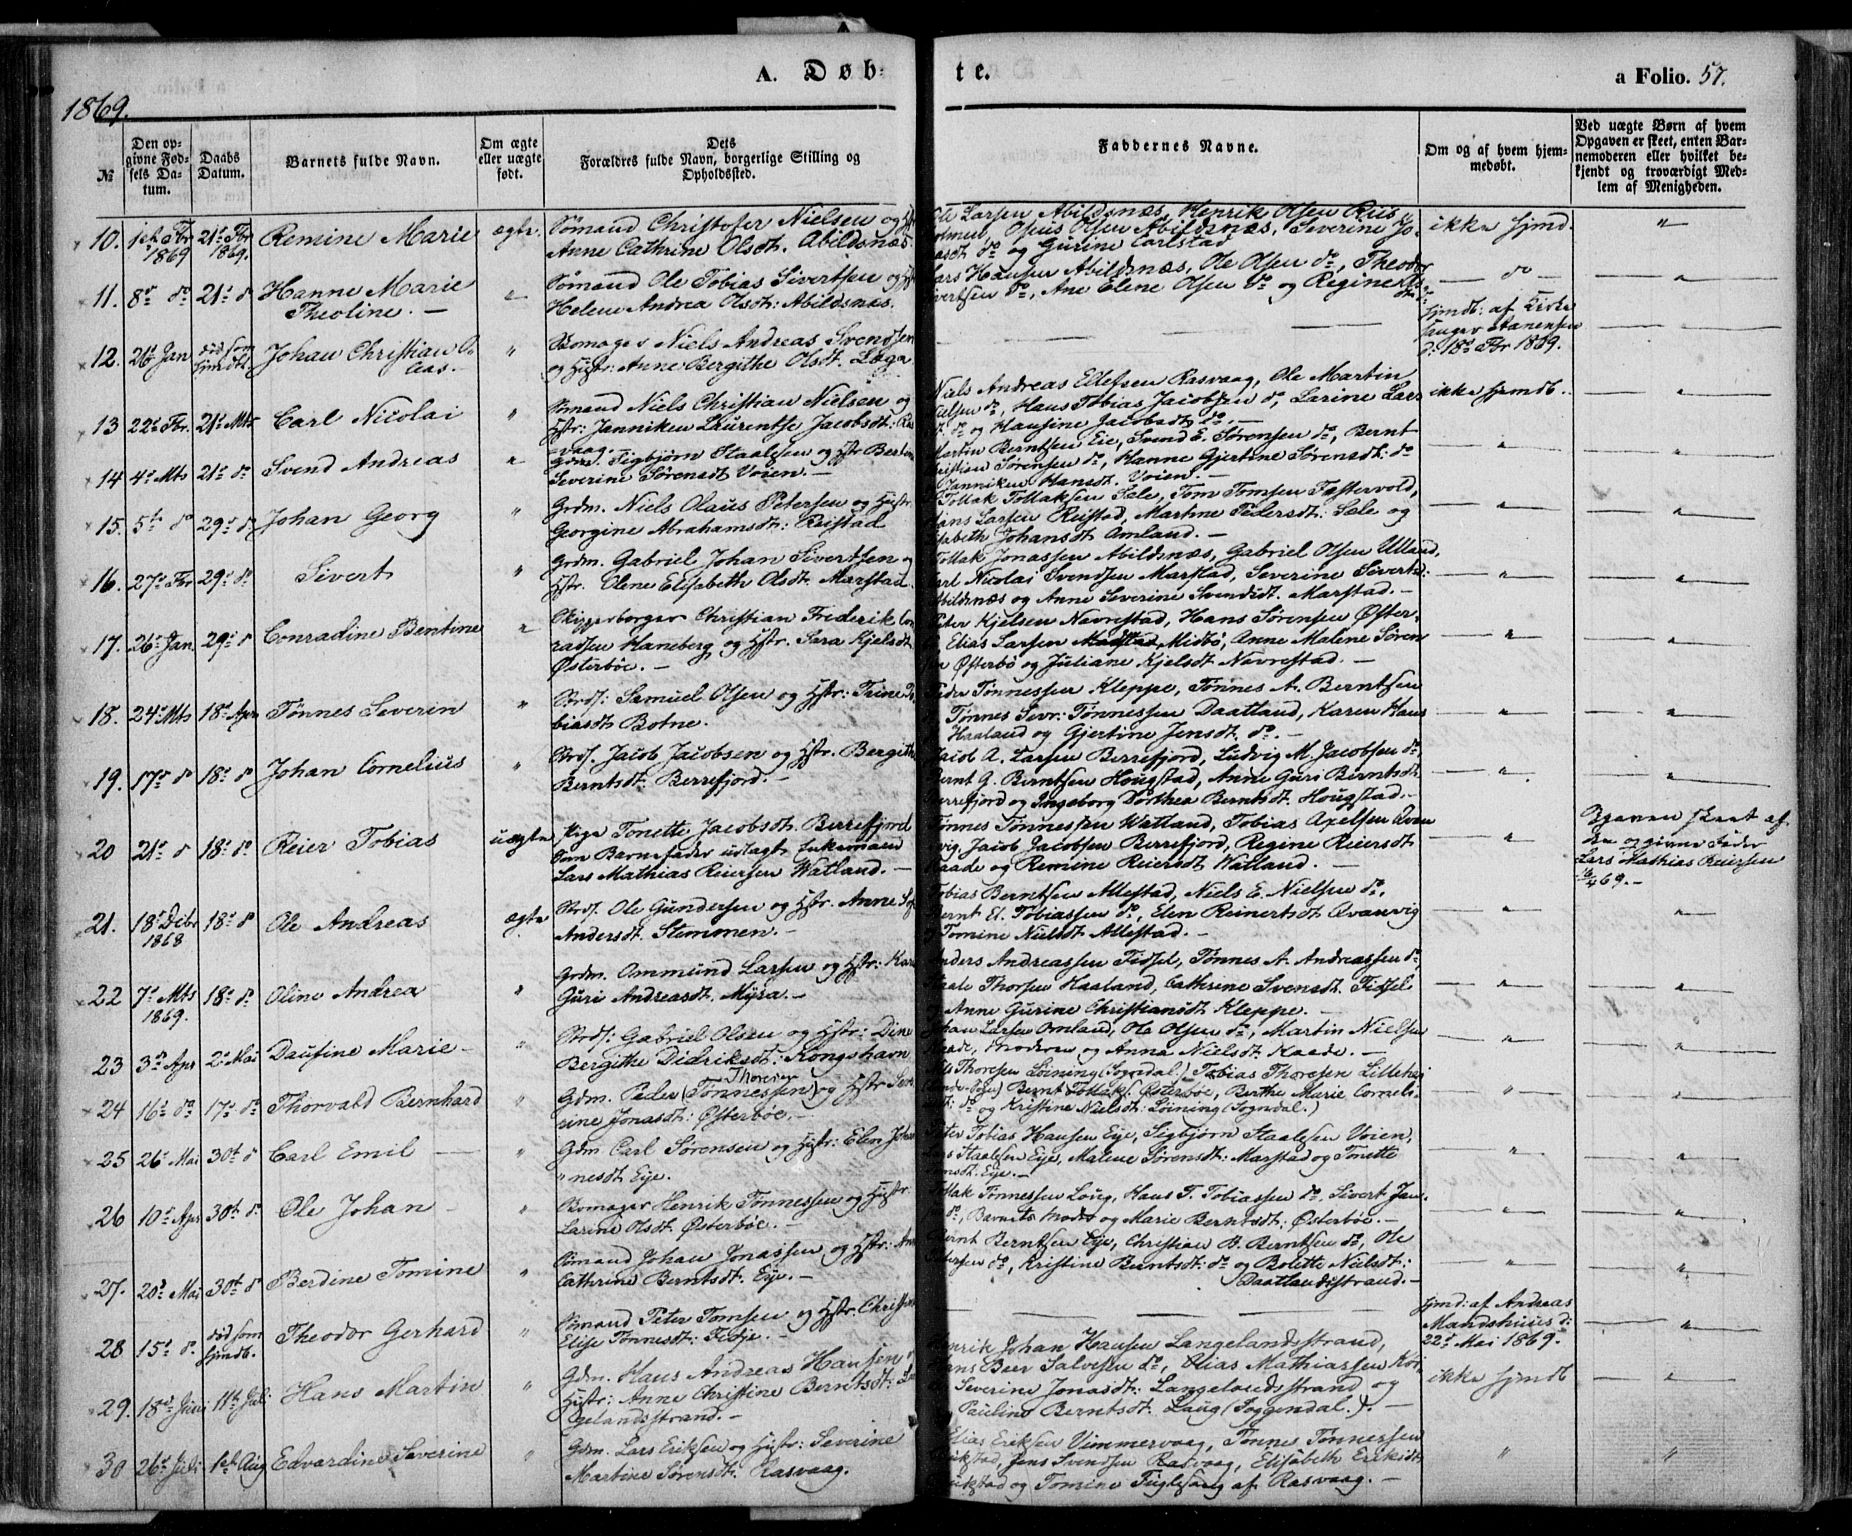 A. Døb=
te.
a Folio. 57.
1869.
№
Den opgivne Fødsels Datum.
Daabs Datum.
Barnets fulde Navn.
Om ægte eller uægte født.
Dets Forældres fulde Navn, borgerlige Stilling og Opholdssted.
Faddernes Navne.
Om og af hvem hjemmedøbt.
Ved uægte Børn af hvem Opgaven er skeet, enten Barnemoderen eller hvilket bekjendt og troværdigt Medlem af Menigheden.
10. 1st Fbr 1869 21d Fbr 1869. Remine Marie ægte. Sømand Christofer Nielsen og
Anne Cathrine Olsdt. Abildsnæs.
Ole Larsen Abildsnæs, Henrik Olsen
Olsen Abildsnæs, Severine
do og Gurine Carlstad
ikke hjmd. "
11. 8d do 21d do Hanne Marie
Theoline. — " Sømand Ole Tobias Sivertsen og
Helene Andrea Olsdt: Abildsnæs.
Lars Hansen Abildsnæs, Ole Olsen do, Theodor
Sivertsen do, Ane Elene Olsen do og Regine
— do — — " —
12. 26d Jan død som hjmdbt. Johan Christian
" Bomager Niels Andreas Svendsen
og Hstr: Anne Bergithe Olsdt. Løga
hjmdb: af Kirke
sanger Aanensen
d: 18d Fbr 1869.
13 22d Fbr. 21d Mts Carl Nicolai " Sømand Niels Christian Nielsen og
Hstr: Janniken Laurentse Jacobsdt: Ras
vaag.
Niels Andreas Ellefsen Rasvaag, Ole Martin
Nielsen do, Hans Tobias Jacobsen do, Larine Lars
dt do og Hansine Jacobsdt do. —
ikke hjemdb. — " —
14 4d Mts 21d do Svend Andreas " Grdm. Sigbjørn Staalesen og Hstr Berten
Severine Sørensdt Voien. —
Martin Berntsen Eie, Svend E. Sørensen do, Bernt
Christian Sørensen do, Hanne Gjertine Sørensdt: do
Janniken Hansdt. Voien. —
— " — — " —
15. 5t do 29d do Johan Georg " Grdm. Niels Olaus Petersen og Hustr
Georgine Abrahamsdt: Reistad
Tollak Tollaksen Sæle, Tom Tomsen Fastervold,
Hans Larsen Reistad, Martine Pedersdt: Sæle og
Elisabeth Johansdt Omland. —
— " — — " —
16. 27d Fbr 29d do Sivert " Grdm. Gabriel Johan Sivertsen og
Hstr. Olene Elisabeth Olsdt. Marstad.
Tollak Jonassen Abildsnæs, Gabriel Olsen Ulland,
Carl Nicolai Svendsen Marstad, Severine Sivertsd:
Abildsnæs og Anne Severine Svendsdt. Marstad. —
— " — — " —
17. 26d Jan 29d do Conradine Bentine " Skipperborger Christian Frederik Con
radsen Haneberg og Hstr. Sara Kjelsdt
Østerbøe. —
Peter Kjelsen Navrestad, Hans Sørensen Øster-
Elias Larsen Midbø, Anne Malene Søren
Østerbø og Juliane Kjelsdt Navrestad. —
— " — — " —
18. 24d Mts 18d Apr Tønnes Severin " Strds. Samuel Olsen og Hstr: Trine To
biasdt Botne.
Peder Tønnessen Kleppe, Tønnes A. Berntsen
Tønnes Sevr: Tønnessen Daatland, Karen Hans
Haaland og Gjertine Jensdt do. —
— " — — " —
19. 17d do 18d do Johan Cornelius " Strds. Jacob Jacobsen og Hstr. Bergithe
Berntsdt: Berrefjord. —
Jacob A. Larsen Berrefjord, Ludvig M. Jacobsen do
Bernt G. Berntsen Hougstad, Anne Guri Berntsdt.
Berrefjord og Ingeborg Dorthea Berntsdt. Hougstad. —
— " — — " —
20 21d do 18d do Reier Tobias uægte Pige Tonette Jacobsdt. Berrefjord
Som Barnefader udlagt Enkemand
Lars Mathias Reiersen Watland. —
Tønnes Tønnessen Watland, Tobias Axelsen Qvan
vig, Jacob Jacobsen Berrefjord, Regine Reiersdt
Raade og Remine Reiersdt Watland. —
— " —
Opgaven skeet af
den opgivne Fader
Lars Mathias Reiersen
21. 18d Debr 1868 18d do Ole Andreas ægte Strds. Ole Gundersen og Hstr. Anne
Andersdt. Stemmen. —
Tobias Berntsen Allestad, Niels E. Nielsen do,
Bernt El. Tobiassen do, Elen Reinertsdt Qvanvig
Tomine Nielsdt Allestad. —
— " — — " —
22 7d Mts 1869. 18d do Oline Andrea " Grdm. Ommund Larsen og Hstr: Karen
Guri Andreasdt. Mysa. —
Anders Andreassen Fidsel, Tønnes A. Andreassen do,
Staale Thorsen Haaland, Cathrine Svensdt. Fidsel
Anne Gurine Christiansdt Kleppe. —
— " — — " —
23 3d Apr 2d Mai Daufine Marie — " Strds: Gabriel Olsen og Hstr: Dine
Bergithe Didriksdt: Kongshavn
Johan Larsen Omland, Ole Olsen do, Martin Nielsen
Raade, Moderen og Anna Nielsdt Raade. —
— " — — " —
24 16d do 17d do Thorvald Bernhard " Gdm. Peder (Tønnessen) Thoresen og Hstr Seve
rine Jonasdt: Østerbøe. —
Thoresen Løining (Sogndal.) Tobias Thoresen Lillehei
Bernt Tollaks. Østerbøe, Berthe Marie Corneli
do og Kristine Nielsdt: Løining (Sogndal.)
" — " —
25 26d Mai 30te do Carl Emil — " Gdm Carl Sørensen og Hstr: Elen Johan
nesdt Eije.
Peter Tobias Hansen Eye, Sigbjørn Staalesen Voien,
Staalesen Eye, Malene Sørensdt: Marstad og Tonette
Eije. —
— " — — " —
26 10d Apr 30te do Ole Johan — " Bomager Henrik Tønnessen og Hstr
Larine Olsdt. Østerbøe. —
Tollak Tønnessen Loug, Hans T. Tobiassen do, Sivert Jan
do, Barnets Moder og Marie Berntsdt: Østerbøe. —
— " — — " —
27. 20d Mai 30te do Berdine Tomine " Sømand Johan Jonassen og Hstr: Anne
Cathrine Berntsdt. Eye. —
Bernt Berntsen Eye, Christian B. Berntsen do, Ole
Pedersen do, Kristine Berntsdt: do og Bolette Nielsdt:
Daatlandsstrand. —
— " — — " —
28 15d do død som hjmdb. Theodor Gerhard " Sømand Peter Tomsen og Hstr. Christine
Elise Tønnesdt: Fidje. —
hjmd: af Andreas
Mandshuus d:
22d Mai 1869.
— " —
29. 18d Juni 11te Juli Hans Martin " Gdm. Hans Andreas Hansen
Hstr: Anne Christine Berntsdt: Lan
gelandsstrand. —
Henrik Johan Hansen Langelandsstrand,
Hans Beer Salvesen do, Elias Mathiassen
Severine Jonasdt: Langelandsstrand og
Pauline Berntsdt. Laug (Soggendal.). —
ikke hjmdb — " —
30 26d Juli 1st Aug Edvardine Severine " Gdm. Lars Eriksen og Hstr: Severine
Martine Sørensdt: Rasvaag.
Elias Eriksen Vimmervaag, Tønnes Tønnessen
Jens Svendsen Rasvaag, Elisabeth Eriksdt
og Tomine Fuglesang af Rasvaag. —
" "